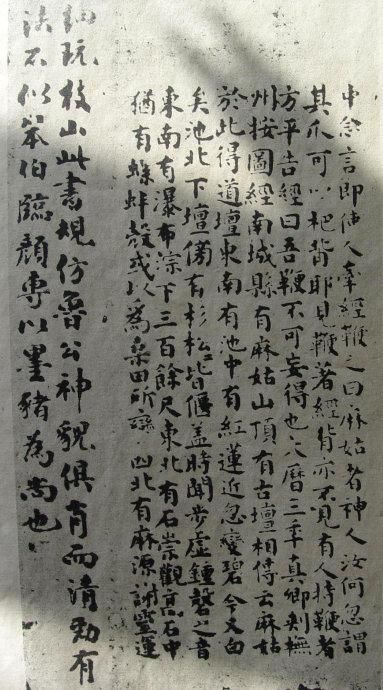 中念言即使人牽經鞭之曰麻姑者神人汝何忽謂
其爪可以杷背耶見鞭著經背亦不見有人持鞭者
方平告經曰吾鞭不可妄得也大曆三年真卿刺撫
州按圖經南城縣有麻姑山頂有古壇相傳云麻姑
於此得道壇東南有池中有紅蓮近忽變碧今又白
矣池北下壇傍有杉松皆偃蓋時聞步虛鍾磬之音
東南有瀑布淙下三百餘尺東北有石崇觀高石中
猶有螺蚌殼或以為桑田所變西北有麻源謝靈運
細玩枝山此書規仿魯公神貌俱肖而清勁有
法不似笨伯臨顏專以墨豬為尚也